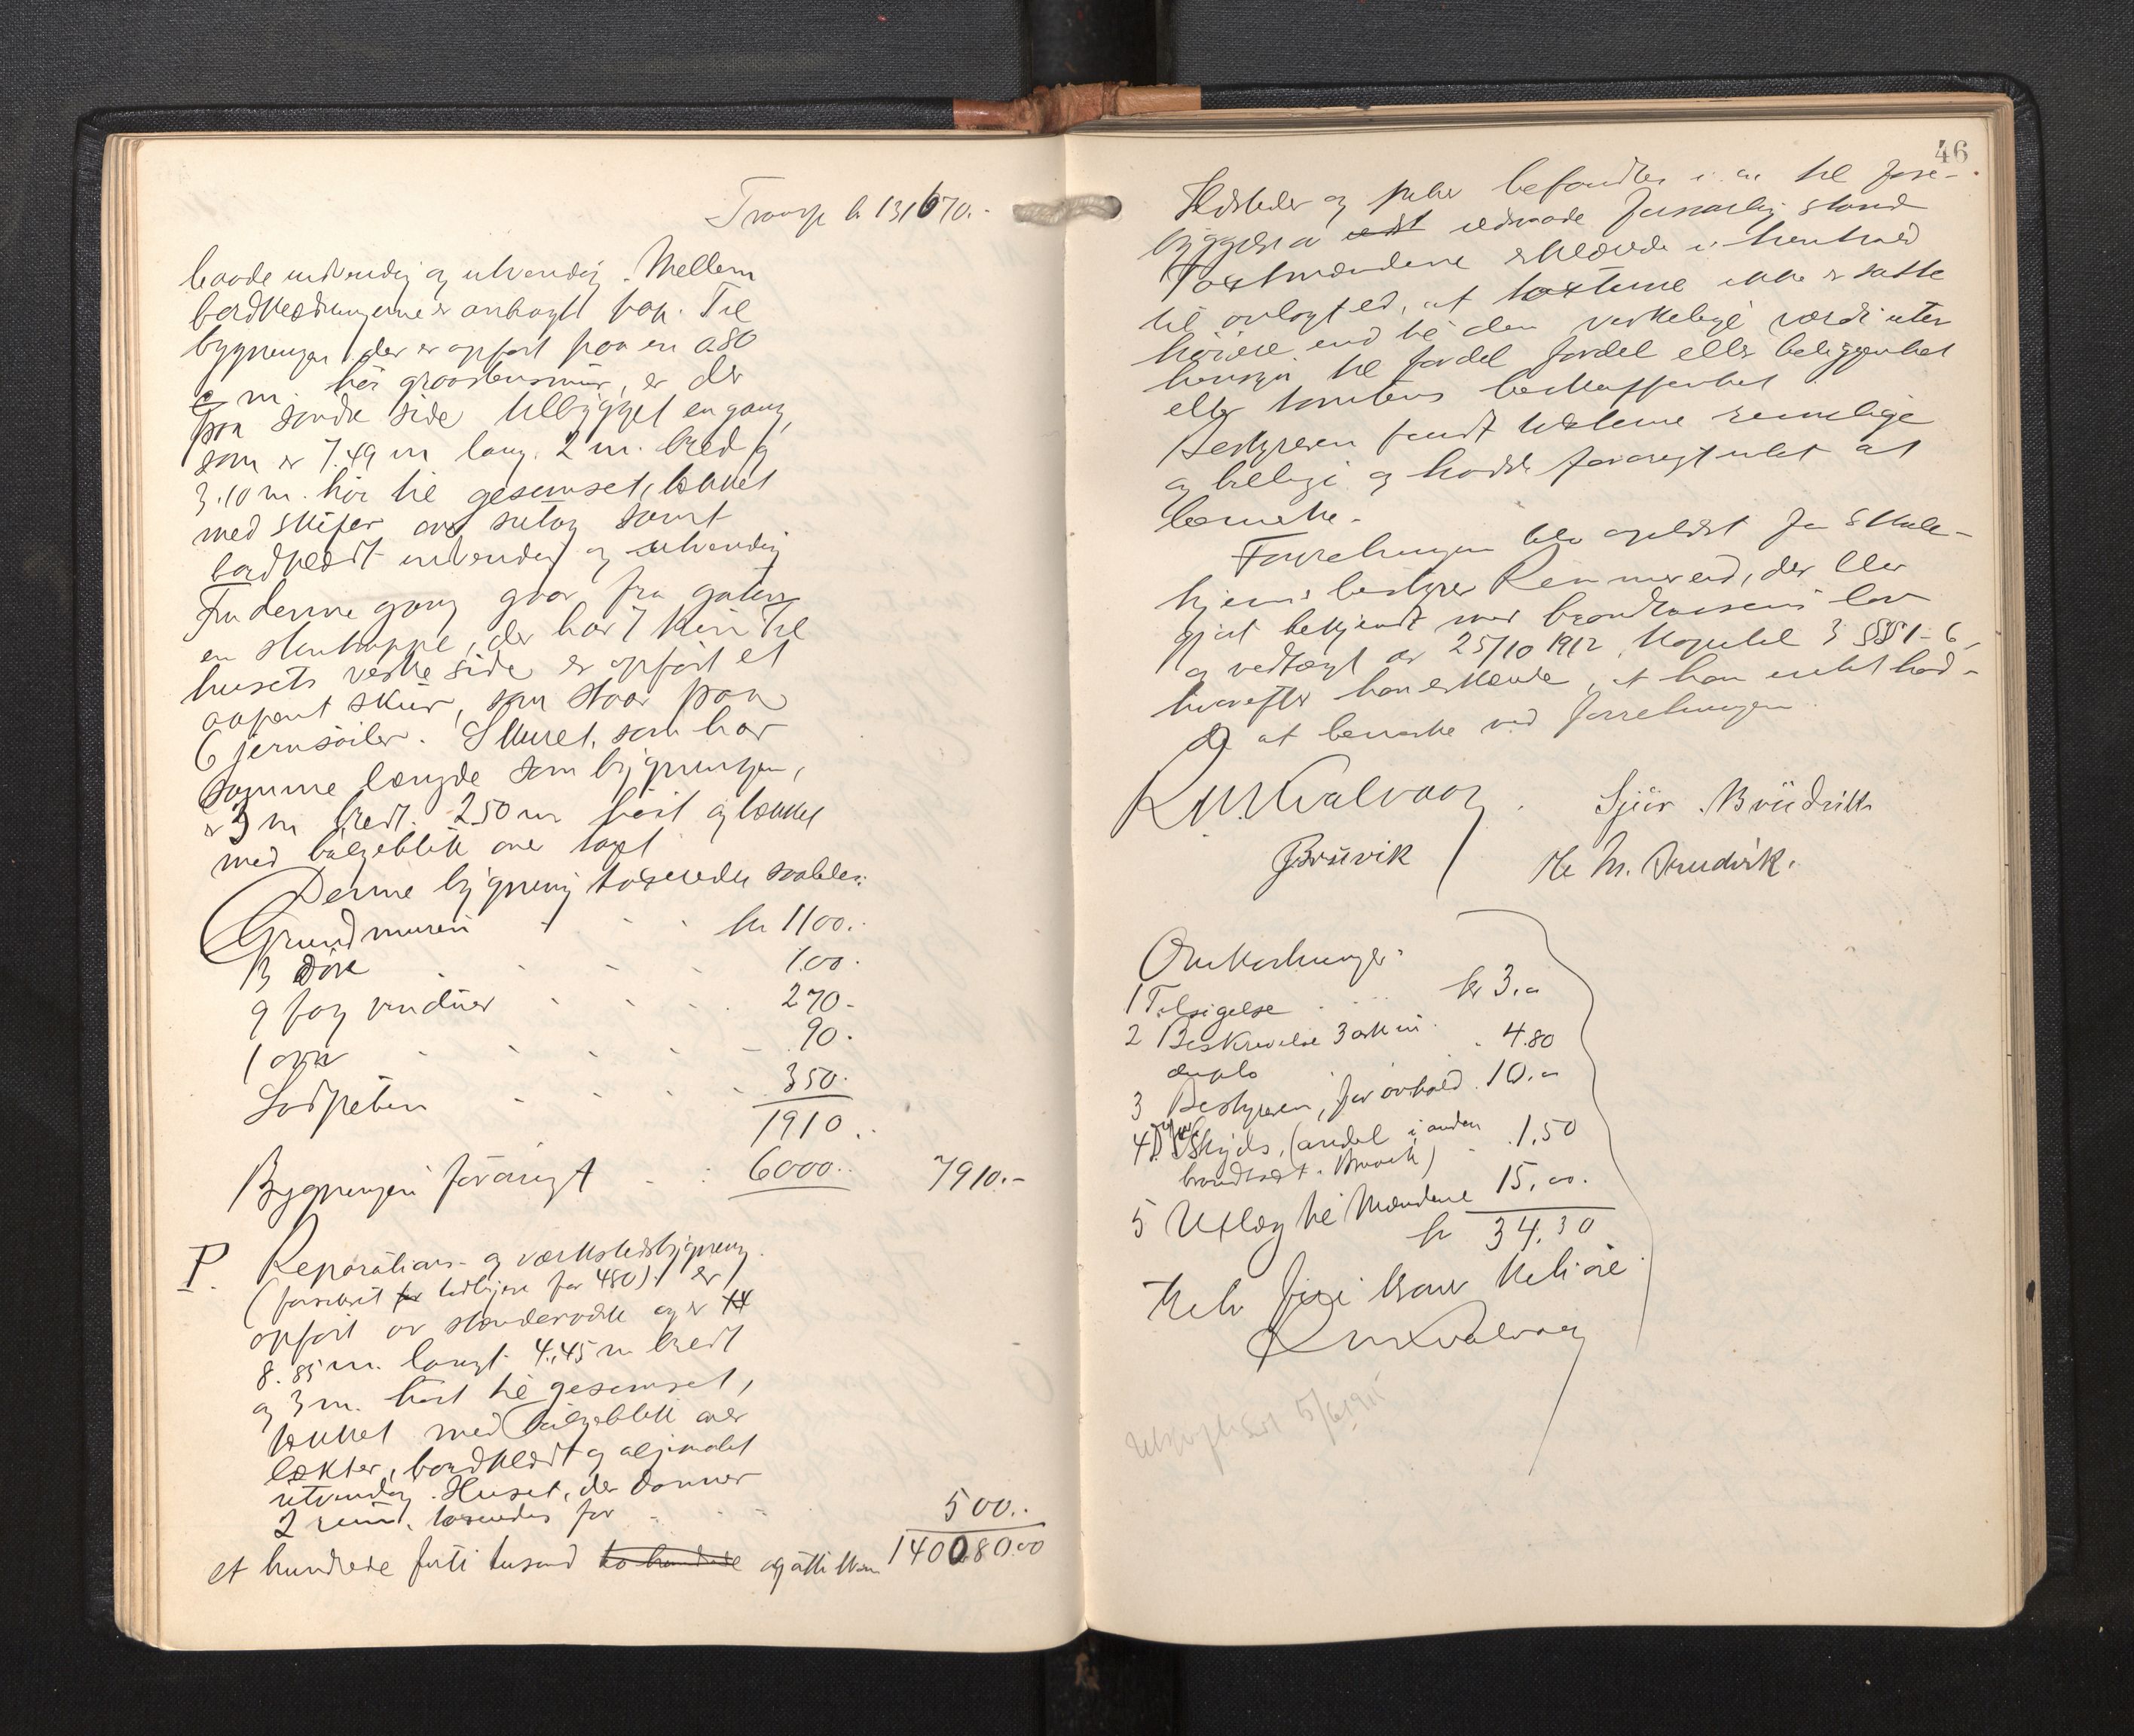 Transp. kr 131670.-
baade indvendig og utvendig. Mellem
bordklædningerne er anbragt pap. Til
bygningen, der er opført paa en 0.80
m. høi graastensmur, er der
paa søndre side tilbygget en gang,
som er 7.49 m lang. 2 m. bred og
3.10 m. høi til gesemset, tækket
med skifer over sutag samt
bordklædt indvendig og utvendig
Fra denne gang gaar fra gaten
en stentrappe, der har 7 trin Til
husets vestre side er opført et
aapent skur, som staar paa
6 jernsøiler. Skuret, som har
samme længde som bygningen,
er 3 m bredt. 2.50 m høit og tækket
med bølgeblikk over tagt
Denne bygning takseredes saaledes:
Grundmuren kr 1100.-
13 døre 100.-
9 fag vinduer 270.-
1 ovn 90.-
Lodpiben 350.-
1910.-
Bygningen forøvrigt 6000.- 7910.-
P. Reparations- og værkstedsbygning
(forsikret for tidligere for 480). er
opført av stenderverk og er 14
8.85 m. langt. 4.45 m bredt
og 3 m. høit til gesemset,
tækket med bølgeblikk over
lækter, bordklædt og oljemalet
utvendig. Huset, der danner
2 rum, takseredes for 500.-
et hundrede førti tusend to hundrede og åtti kron 140080.00
46
Ildsteder og piber befandtes i en til fore-
byggelse av ildsvaade forsvarlig stand
Takstmændene erklærede i henhold
til avlagt ed, at taksterne ikke er satte
høiere end til den verkelige værdi uten
hensyn til fordel fordel eller beliggenhet
eller tomtens beskaffenhet
Bestyreren fandt taksterne rimelige
og billige og hadde forøvrigt intet at
bemerke.
Forretningen blev oplæst for Skule-
hjems bestyrer Rennesund, der blev
gjort bekjendt med brandkassens lov
og vedtægt av 25/10 1912, Kapitel 3 §§§ 1-6,
hvorefter han erklærede, at han intet had-
de at bemerke ved forretningen
R M Kvalvaag. Sjur Bruvik
Bruvik M. Bruvik.
Omkostninger:
1 Tilsigelse kr 3.00
2 Beskrivelse 3 ark in
duplo 4.80
3 Bestyreren, for avhold. 10.00
4 Skyds, (andel i anden
brandtakst. Bruvik) 1.50
5 Utlæg til Mændene 15.00.
kr 34.30
Tretti fire kroner tretti øre
R M Kvalvaag
Utskrift 5/6 1915